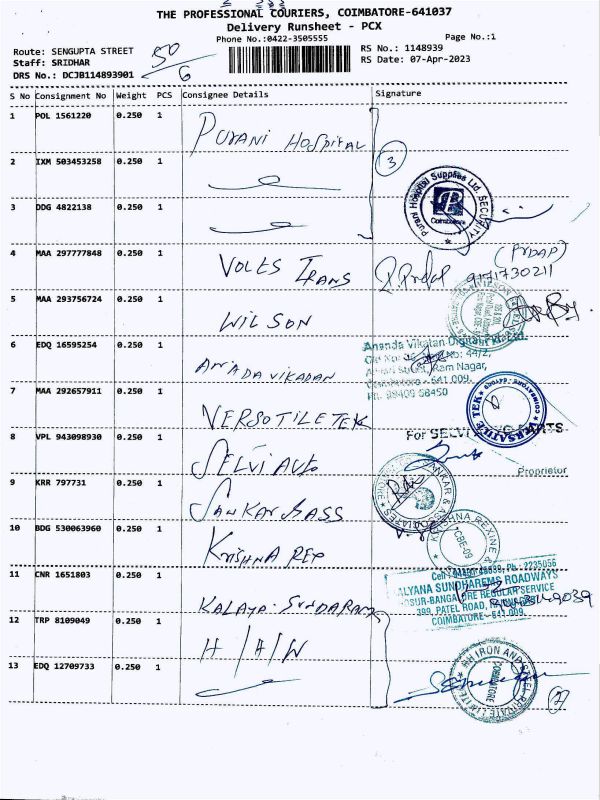 THE PROFESSIONAL COURIERS, COIMBATORE-641037
Delivery Runsheet - PCX
Phone No.:0422-3505555
Page No.:1
Route: SENGUPTA STREET
Staff: SRIDHAR
DRS No.: DCJB114893901
50/6
RS No.: 1148939
RS Date: 07-Apr-2023
S No Consignment No Weight PCS Consignee Details Signature
1 POL 1561220 0.250 1 PURANI HOSPITAL
2 IXM 503453258 0.250 1
3
3 DDG 4822138 0.250 1
Purani Hospital Supplies Ltd. SECURITY
Coimbatore
4 MAA 297777848 0.250 1 VOLTS TRANS
9171730211
5 MAA 293756724 0.250 1 WILSON
6 EDQ 16595254 0.250 1 ANADA VIKADAN
Ananda Vikatan Digital
Ram Nagar,
Coimbatore - 641 009.
7 MAA 292657911 0.250 1 VERSOTILE TEK
VERSATILE TEK
COIMBATORE
8 VPL 943098930 0.250 1 SELVI AUTO
For SELVI
PARTS
Proprietor
9 KRR 797731 0.250 1 SANKAR &ASS
SANKAR & ASSOCIATES
10 BDG 530063960 0.250 1 KRISHNA REX
KRISHNA REXINE
CBE-09
11 CNR 1651803 0.250 1 KALAYA. SUNDARAM
Ph : 2235056
KALYANA SUNDHAREMS ROADWAYS
HOSUR-BANGALORE REGULAR SERVICE
399, PATEL ROAD, RAMNAGAR
COIMBATORE - 641 009
12 TRP 8109049 0.250 1 H/H/W
13 EDQ 12709733 0.250 1
IRON AND STEEL PRIVATE LIMITED
COIMBATORE
2